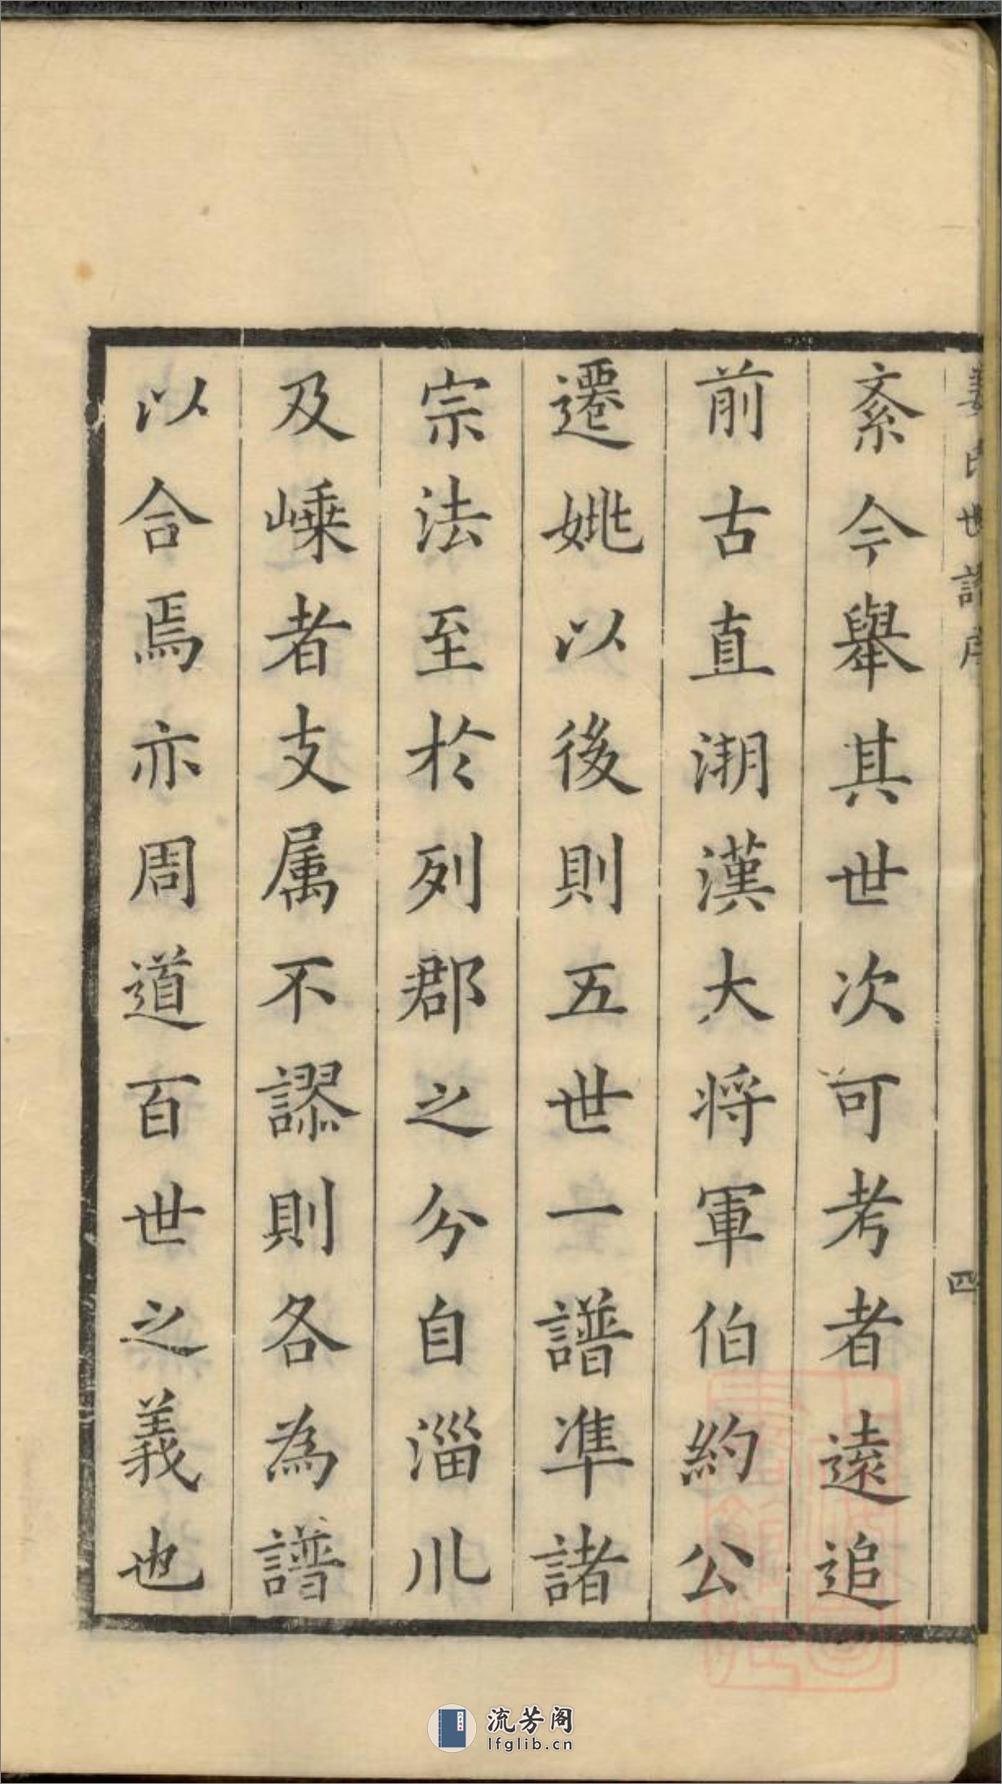 紊今舉其世次可考者遠追
前古直溯漢大将軍伯約公
遷姚以後則五世一譜準諸
宗法至於列郡之分自淄川
及嵊者支属不謬則各為譜
以合焉亦周道百世之義也
姜氏世譜序
四
流芳阁
lfglib.cn